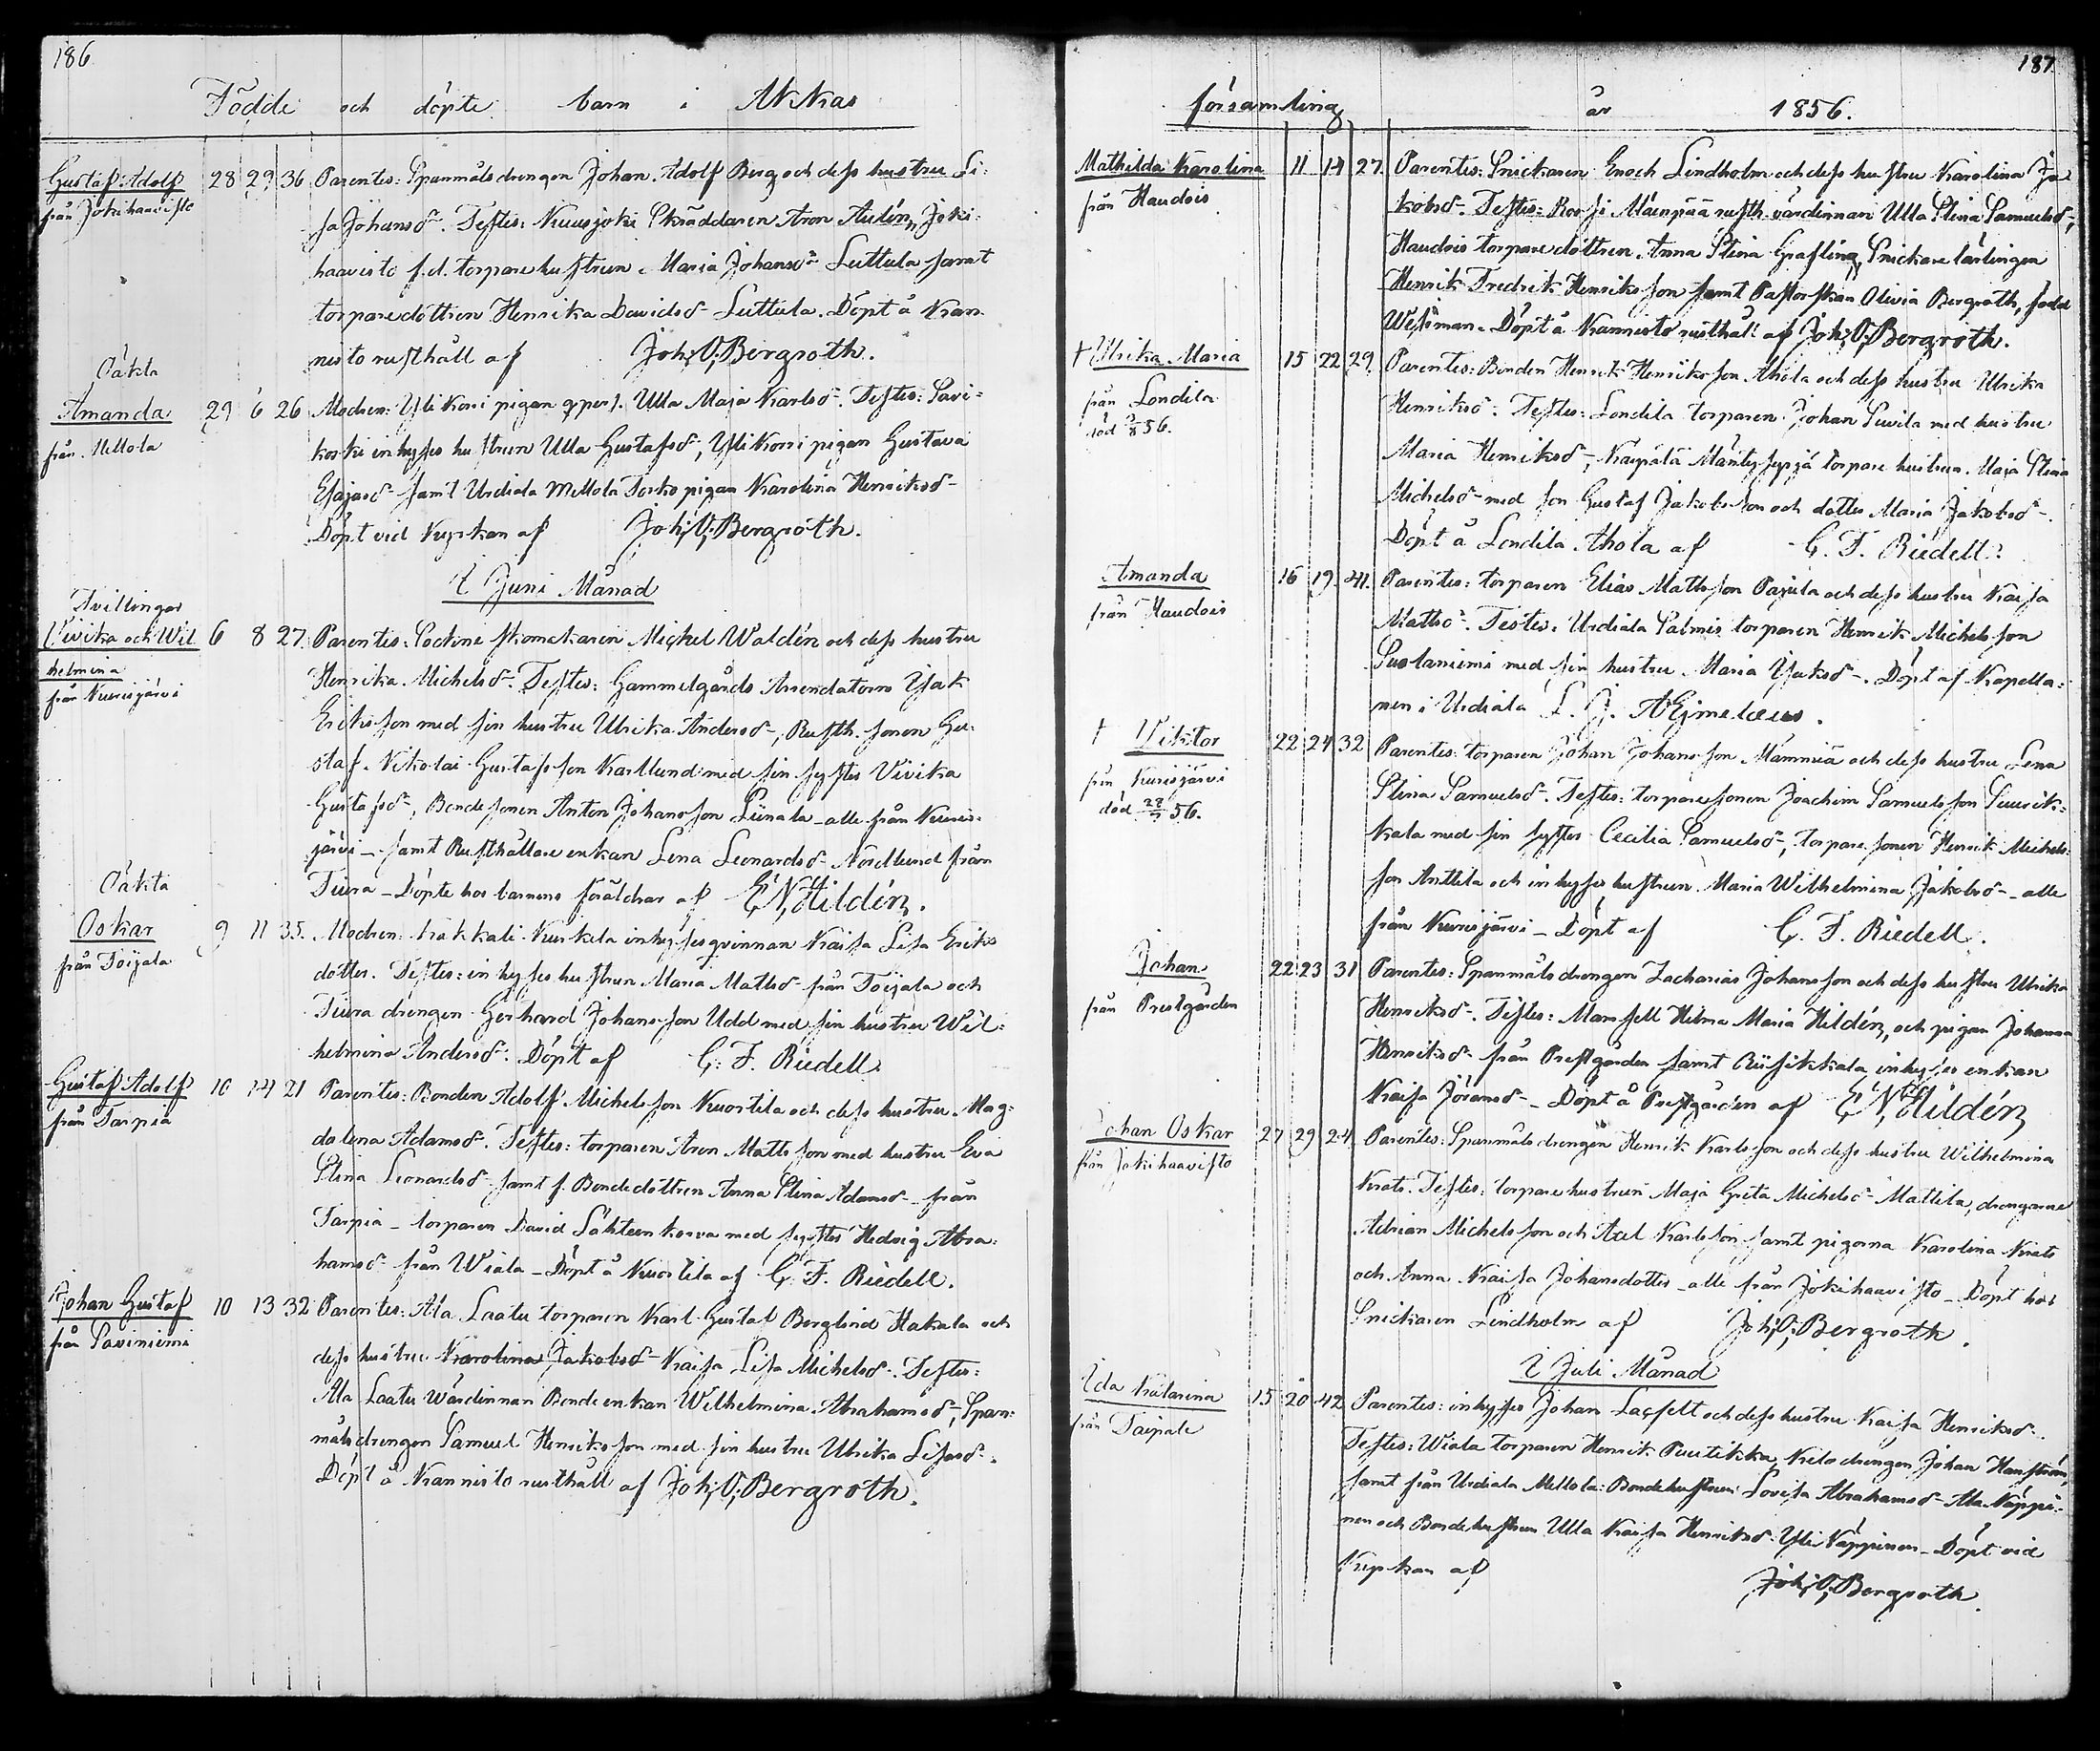 186
Födde och döpte barn i Akkas
Gustaf Adolf 28 29 36 Parentes: Spanmålsdrengen Johan Adolf Berg och dess hustru Li-
från Jokihaavisto
sa Johansdr. Testes: Kuusjoki Skräddaren Aron Aulén, Joki-
haavisto f.d. torpare hustrun Maria Johansdr Luttula samt
torparedottren Henrika Davidsdr Luttula. Döpt å Kan-
nisto rusthåll af Joh. O. Bergroth.
Oäkta
Amanda 29 6 26 Modren: Yli Korri pigan Ulla Maja Karlsdr. Testes: Savi-
från Mellola
koski inhyses hustrun Ulla Gustafsdr, Yli Korri pigan Gustava
Esajasdr samt Urdiala Mellola Torko pigan Karolina Henriksdr
Döpt vid Kyrkan af Joh. O. Bergroth.
I Juni Månad
Tvillingar
Vivika och Wil 6 8 27. Parentes: Sockne skomakaren Mickel Waldén och dess hustru
helmina
från Kurisjärvi
Henrika Michelsdr. Testes: Gammelgårds Arrendatorn Isak
Eriksson med sin hustru Ulrika Andersdr, Rusth. sonen Gu-
staf Nikolai Gustafsson Karllund med sin syster Vivika
Gustafsdr, Bonde sonen Anton Johansson Liinala alle från Kuris-
järvi – samt Rusthållare enkan Lena Leonardsdr Nordlund från
Tiura – Döpte hos barnens föräldrar af E. N. Hildén.
Oäkta
Oskar 9 11 35. Modren: Kakkali Kurkela inhysesqvinnan Kaisa Lisa Eriks
från Toijala
dotter. Testes: inhyses hustrun Maria Mattsdr från Toijala och
Tiura drengen Gerhard Johansson Udd med sin hustru Wil-
helmina Andersdr. Döpt af C. F. Riedell.
Gustaf Adolf 10 14 21 Parentes: Bonden Adolf Michelsson Kuortila och dess hustru Mag-
från Tarpia
dalena Adamsdr. Testes: torparen Aron Mattsson med hustru Eva
Stina Leonardsdr samt f. Bondedottren Anna Stina Adamsdr från
Tarpia – torparen David Lahteenkorva med syster Hedvig Abra-
hamsdr från Wiala – Döpt å Kuortila af C. F. Riedell.
Johan Gustaf 10 13 32 Parentes: Ala Laatu torparen Karl Gustaf Berglind Hakala och
från Saviniemi
dess hustru Karolina Jakobsdr Kaisa Lisa Michelsdr. Testes:
Ala Laatu Wärdinnan Bonde enkan Wilhelmina Abrahamsdr, Span-
målsdrengen Samuel Henriksson med sin hustru Ulrika Lisasdr.
Döpt å Kannisto rusthåll af Joh. O. Bergroth.
187
församling år 1856.
Mathilda Karolina 11 14 27. Parentes: Snickaren Enoch Lindholm och dess hustru Karolina Ja
från Haudois
kobsdr. Testes: Korsi Mäenpää rusth. värdinnan Ulla Stina Samuelsdr,
Haudois torparedottren Anna Stina Grafling, Snickare lärlingen
Henrik Fredrik Henriksson samt Pastorskan Olivia Bergroth, född
Wessman. Döpt å Kannisto rusthåll af Joh. O. Bergroth.
† Ulrika Maria 15 22 29. Parentes: Bonden Henrik Henriksson Ahola och dess hustru Ulrika
från Londila
död 56.
Henriksdr. Testes: Londila torparen Johan Sivila med hustru
Maria Henriksdr, torpare hustrun Maja Stina
Michelsdr med son Gustaf Jakobsson och dotter Maria Jakobsdr.
Döpt å Londila Ahola af C. F. Riedell.
Amanda 16 19 41. Parentes: torparen Elias Mattsson Pajula och dess hustru Kaisa
från Haudois
Mattsdr. Testes: Urdiala Salmis torparen Henrik Michelsson
Suolaniemi med sin hustru Maria Isaksdr. Döpt af Kapella-
nen i Urdiala L. J. Aejmelæus.
† Viktor 22 24 32 Parentes: torparen Johan Johansson Mämmiä och dess hustru Lena
från Kurisjärvi
död 28/7 56.
Stina Samuelsdr. Testes: torpare sonen Joachim Samuelsson Suurik-
kala med sin syster Cecilia Samuelsdr, torpare sonen Henrik Michels-
son Anttila och inhyses hustrun Maria Wilhelmina Jakobsdr alle
från Kurisjärvi – Döpt af C. F. Riedell.
Johan 22 23 31 Parentes: Spanmålsdrengen Zacharias Johansson och dess hustru Ulrika
från Prestgården
Henriksdr. Testes: Mamsell Hilma Maria Hildén, och pigan Johanna
Henriksdr från Prestgården samt Riisikkala inhyses enkan
Kaisa Göransdr – Döpt å Prestgården af E. N. Hildén
Johan Oskar 27 29 24. Parentes: Spanmålsdrengen Henrik Karlsson och dess hustru Wilhelmina
från Jokihaavisto
Krats. Testes: torpare hustrun Maja Greta Michelsdr Mattila, drengarne
Adrian Michelsson och Axel Karlsson samt pigorna Karolina Krats
och Anna Kaisa Johansdotter alle från Jokihaavisto – Döpt hos
Snickaren Lindholm af Joh. O. Bergroth.
I Juli Månad
Ida Katarina 15 20 42 Parentes: inhyses Johan Lagfelt och dess hustru Kaisa Henriksdr.
från Taipale
Testes: Wiala torparen Henrik Puutikka, drengen Johan Hanström,
samt från Urdiala Mellola: Bondehustrun Lovisa Abrahamsdr Ala Näppi-
nen och Bondehustrun Ulla Kaisa Henriksdr Yli Näppinen – Döpt vid
Kyrkan af Joh. O. Bergroth.